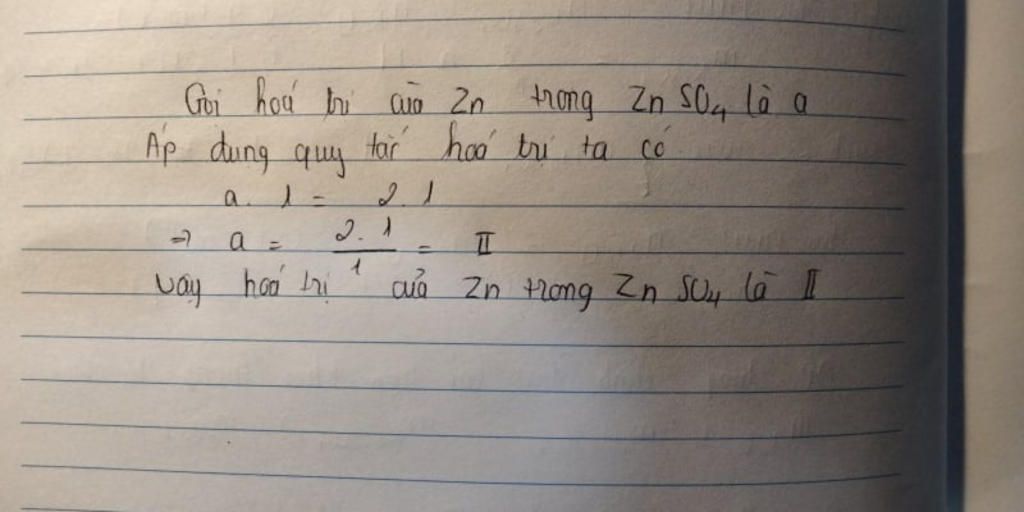 Gọi hoá trị của Zn trong ZnSO4 là a
Áp dụng quy tắc hoá trị ta có
a. 1 = 2. 1
=> a = 2. 1 / 1 = II
Vậy hoá trị của Zn trong ZnSO4 là II